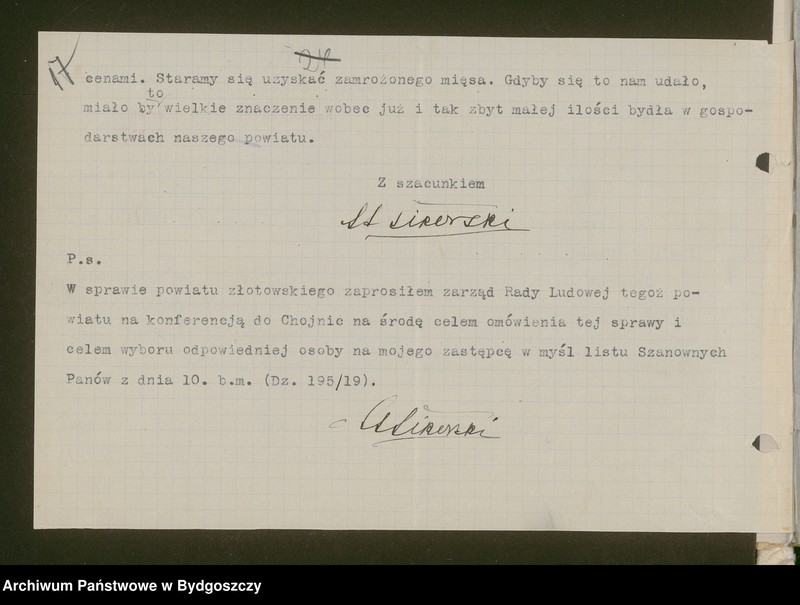 17
24
cenami. Staramy się uzyskać zamrożonego mięsa. Gdyby się to nam udało,
to
miało by wielkie znaczenie wobec już i tak zbyt małej ilości bydła w gospo-
darstwach naszego powiatu.
Z szacunkiem
St Sikorski
P.s.
W sprawie powiatu złotowskiego zaprosiłem zarząd Rady Ludowej tegoż po-
wiatu na konferencją do Chojnic na środę celem omówienia tej sprawy i
celem wyboru odpowiedniej osoby na mojego zastępcę w myśl listu Szanownych
Panów z dnia 10. b.m. (Dz. 195/19).
St Sikorski
Archiwum Państwowe w Bydgoszczy